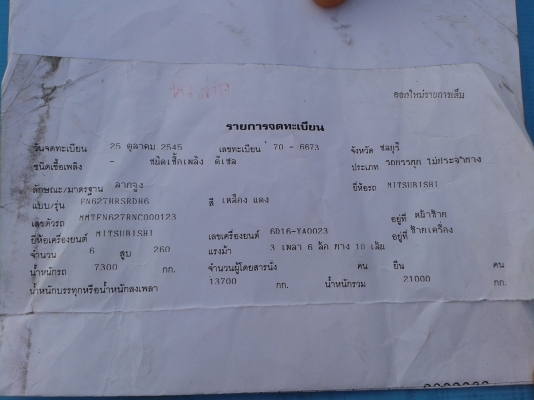 ออกใหม่รายการเต็ม
รายการจดทะเบียน
วันจดทะเบียน 25 ตุลาคม 2545 เลขทะเบียน 70 - 6673 จังหวัด ชลบุรี
ชนิดเชื้อเพลิง - ชนิดเชื้อเพลิง ดีเซล ประเภท รถบรรทุก ไม่ประจำทาง
ลักษณะ/มาตรฐาน ลากจูง ยี่ห้อรถ MITSUBISHI
แบบ/รุ่น FN627HRSRDH6 สี เหลือง แดง
เลขตัวรถ MMTFN627RNC000123 อยู่ที่ หน้าซ้าย
ยี่ห้อเครื่องยนต์ MITSUBISHI เลขเครื่องยนต์ 6D16-YA0023 อยู่ที่ ซ้ายเครื่อง
จำนวน 6 สูบ 260 แรงม้า 3 เพลา 6 ล้อ ยาง 10 เส้น
น้ำหนักรถ 7300 กก. จำนวนผู้โดยสารนั่ง คน ยืน คน
น้ำหนักบรรทุกหรือน้ำหนักลงเพลา 13700 กก. น้ำหนักรวม 21000 กก.